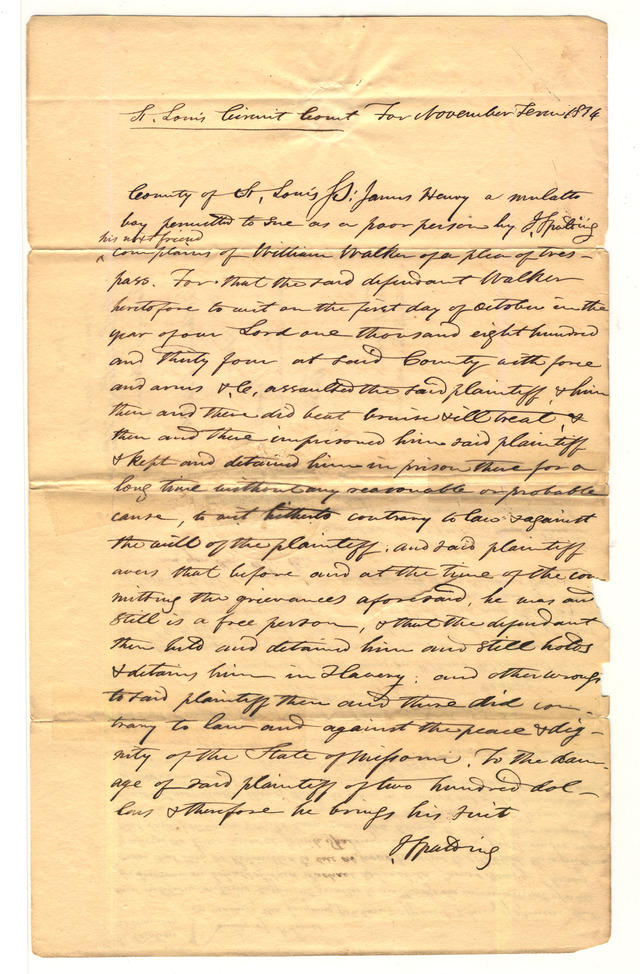 St. Louis Circuit Court For November Term 1834
County of St. Louis Ss: James Henry a mulatto
boy permitted to sue as a poor person by J Spalding
his next friend
complains of William Walker of a plea of tres-
pass. For that the said defendant Walker
heretofore to wit on the first day of October in the
year of our Lord one thousand eight hundred
and thirty four at said County with force
and arms &.C, assaulted the said plaintiff, & him
then and there did beat bruise & ill treat, &
then and there imprisoned him said plaintiff
& kept and detained him in prison there for a
long time without any reasonable or probable
cause, to wit hitherto contrary to law & against
the will of the plaintiff. and said plaintiff
avers that before and at the time of the com
mitting the grievances aforesaid, he was and
still is a free person, & that the defendant
then held and detained him and still holds
& detains him in slavery. and other wrongs
to said plaintiff then and there did con-
trary to law and against the peace & dig-
nity of the State of Missouri. To the dam-
age of said plaintiff of two hundred dol-
lars & therefore he brings his suit
J Spalding